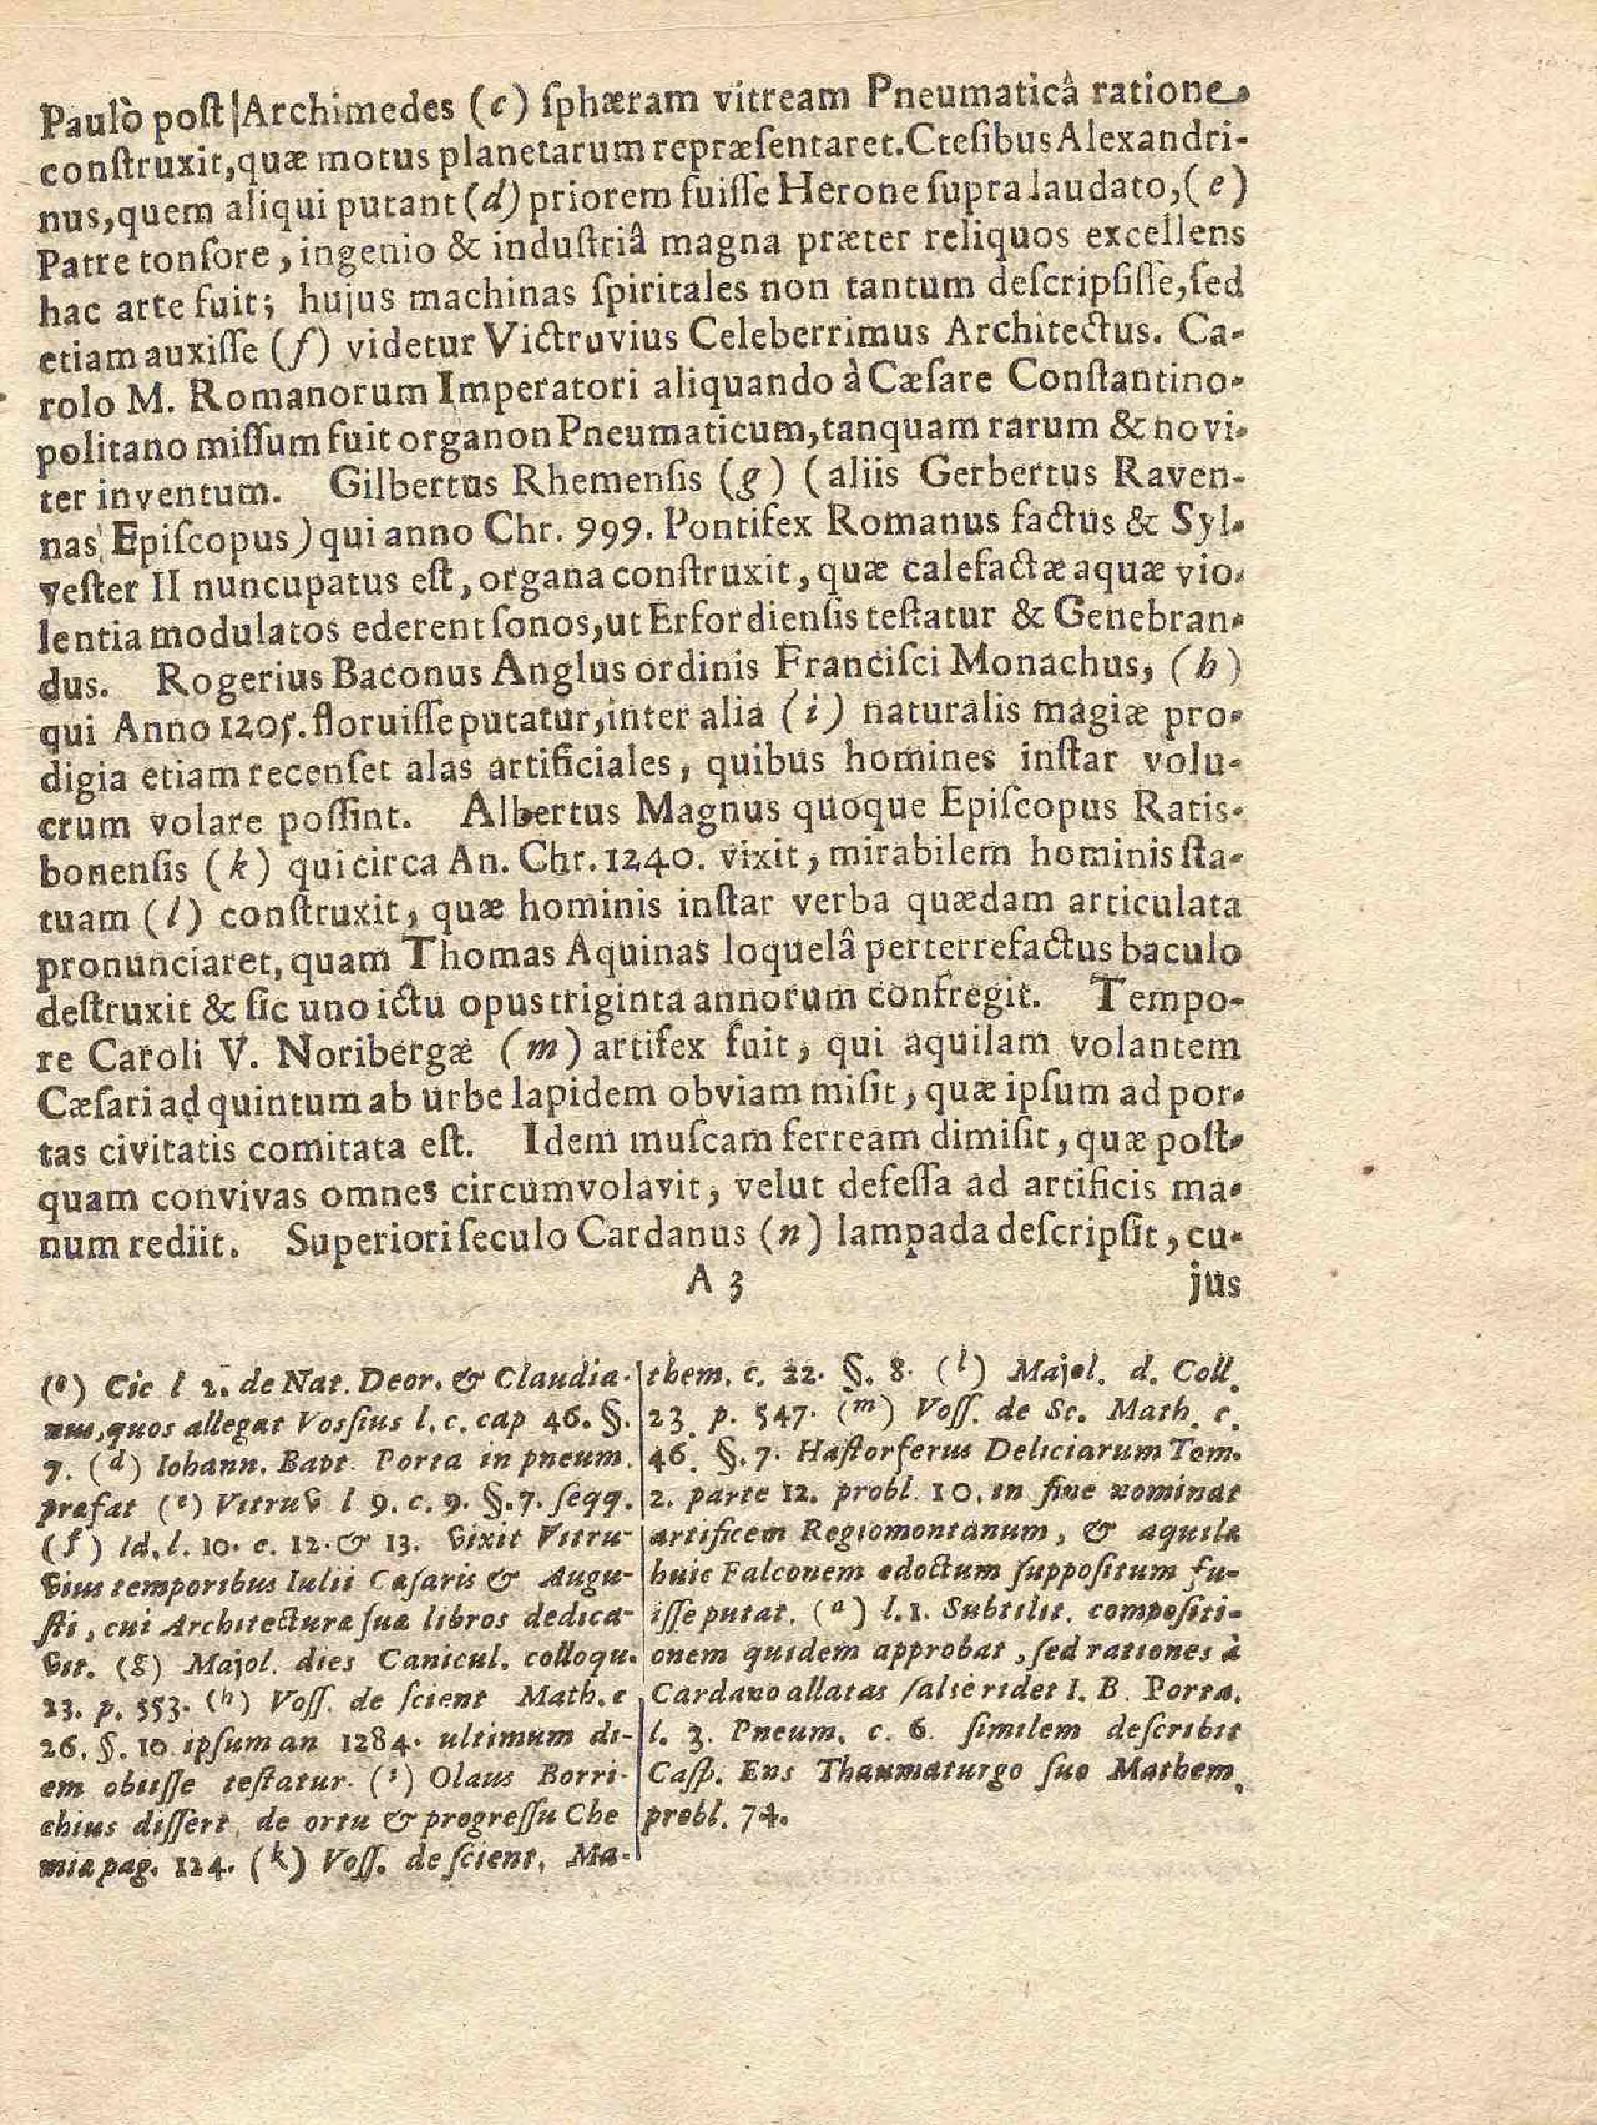 Paulò poſt Archimedes (c) ſphæram vitream Pneumaticâ ratione
conſtruxit, quæ motus planetarum repræſentaret. Cteſibus Alexandri-
nus, quem aliqui putant (d) priorem fuiſſe Herone ſupra laudato, (e)
Patre tonſore, ingenio & induſtriâ magna præter reliquos excellens
hac arte fuit; hujus machinas ſpiritales non tantum deſcripſiſſe, ſed
etiam auxiſſe (f) videtur Victruvius Celeberrimus Architectus. Ca-
rolo M. Romanorum Imperatori aliquando à Cæſare Conſtantino-
politano miſſum fuit organon Pneumaticum, tanquam rarum & novi-
ter inventum. Gilbertus Rhemenſis (g) (aliis Gerbertus Raven-
nas Epiſcopus) qui anno Chr. 999. Pontifex Romanus factus & Syl-
veſter II nuncupatus eſt, organa conſtruxit, quæ calefactæ aquæ vio-
lentia modulatos ederent ſonos, ut Erfordienſis teſtatur & Genebran-
dus. Rogerius Baconus Anglus ordinis Franciſci Monachus, (h)
qui Anno 1205. floruiſſe putatur, inter alia (i) naturalis magiæ pro-
digia etiam recenſet alas artificiales, quibus homines inſtar volu-
crum volare poſſint. Albertus Magnus quoque Epiſcopus Ratis-
bonenſis (k) qui circa An. Chr. 1240. vixit, mirabilem hominis ſta-
tuam (l) conſtruxit, quæ hominis inſtar verba quædam articulata
pronunciaret, quam Thomas Aquinas loquelâ perterrefactus baculo
deſtruxit & ſic uno ictu opus triginta annorum confregit. Tempo-
re Caroli V. Noribergæ (m) artifex fuit, qui aquilam volantem
Cæſari ad quintum ab urbe lapidem obviam miſit, quæ ipſum ad por-
tas civitatis comitata eſt. Idem muſcam ferream dimiſit, quæ poſt-
quam convivas omnes circumvolavit, velut defeſſa ad artificis ma-
num rediit. Superiori ſeculo Cardanus (n) lampada deſcripſit, cu-
A 3 jus
(c) Cic l 2. de Nat. Deor. & Claudia-
nus, quos allegat Voſſius l. c. cap 46. §.
7. (d) Iohann. Bapt. Porta in pneum.
præfat (e) Vitruv l 9. c. 9. §. 7. ſeqq.
(f) Id. l. 10. c. 12. & 13. vixit Vitru-
vius temporibus Iulii Cæſaris & Augu-
ſti, cui Architecturæ ſuæ libros dedica-
vit. (g) Majol. dies Canicul. colloqu.
23. p. 553. (h) Voſſ. de ſcient Math. c
26. §. 10 ipſum an 1284. ultimum di-
em obiiſſe teſtatur. (i) Olaus Borri-
chius diſſert. de ortu & progreſſu Che
miæ pag. 124. (k) Voſſ. de ſcient. Ma-
them. c. 22. §. 8. (l) Majol. d. Coll.
23. p. 547. (m) Voſſ. de Sc. Math. c.
46. §. 7. Haſtorferus Deliciarum Tom.
2. parte 12. probl. 10. in fine nominat
artificem Regiomontanum, & aquilæ
huic Falconem edoctum ſuppoſitum fu-
iſſe putat. (n) l. 1. Subtilit. compoſiti-
onem quidem approbat, ſed rationes à
Cardano allatas ſalſe ridet I. B. Porta.
l. 3. Pneum. c. 6. ſimilem deſcribit
Caſp. Ens Thaumaturgo ſuo Mathem.
probl. 74.